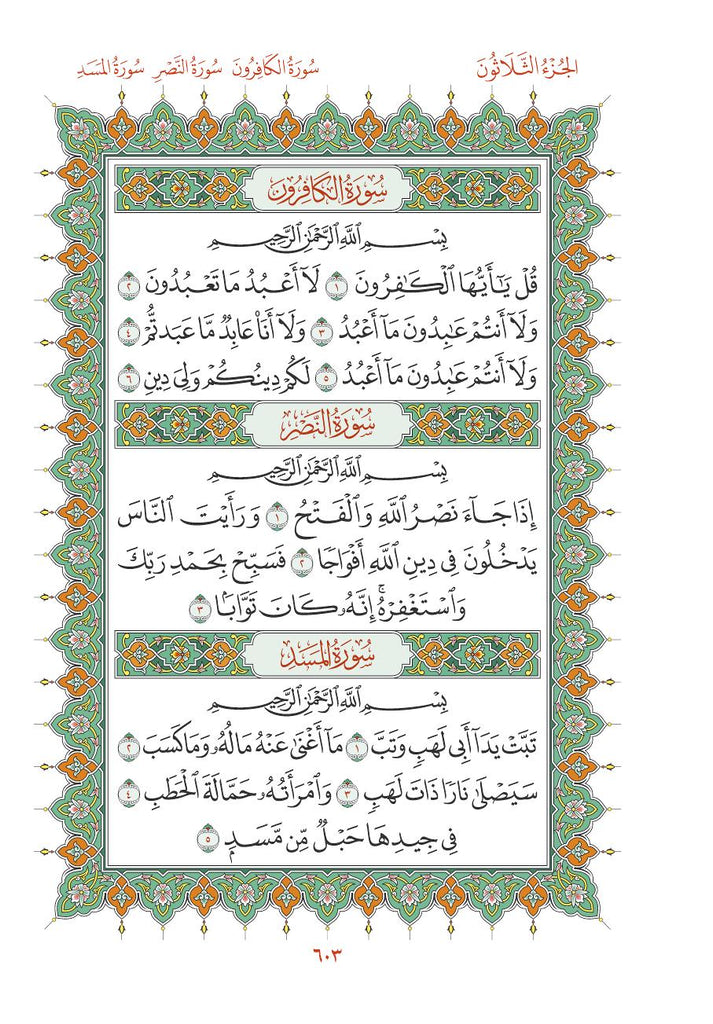 الجُزْءُ الثَّلَاثُونَ سُورَةُ الكَافِرُونَ سُورَةُ النَّصْرِ سُورَةُ المَسَدِ
سُورَةُ الكَافِرُونَ
بِسْمِ اللَّهِ الرَّحْمَٰنِ الرَّحِيمِ
قُلْ يَٰٓأَيُّهَا ٱلْكَٰفِرُونَ ١ لَآ أَعْبُدُ مَا تَعْبُدُونَ ٢
وَلَآ أَنتُمْ عَٰبِدُونَ مَآ أَعْبُدُ ٣ وَلَآ أَنَا۠ عَابِدٌ مَّا عَبَدتُّمْ ٤
وَلَآ أَنتُمْ عَٰبِدُونَ مَآ أَعْبُدُ ٥ لَكُمْ دِينُكُمْ وَلِىَ دِينِ ٦
سُورَةُ النَّصْرِ
بِسْمِ اللَّهِ الرَّحْمَٰنِ الرَّحِيمِ
إِذَا جَآءَ نَصْرُ ٱللَّهِ وَٱلْفَتْحُ ١ وَرَأَيْتَ ٱلنَّاسَ
يَدْخُلُونَ فِى دِينِ ٱللَّهِ أَفْوَاجًا ٢ فَسَبِّحْ بِحَمْدِ رَبِّكَ
وَٱسْتَغْفِرْهُ ۚ إِنَّهُۥ كَانَ تَوَّابًۢا ٣
سُورَةُ المَسَدِ
بِسْمِ اللَّهِ الرَّحْمَٰنِ الرَّحِيمِ
تَبَّتْ يَدَآ أَبِى لَهَبٍ وَتَبَّ ١ مَآ أَغْنَىٰ عَنْهُ مَالُهُۥ وَمَا كَسَبَ ٢
سَيَصْلَىٰ نَارًا ذَاتَ لَهَبٍ ٣ وَٱمْرَأَتُهُۥ حَمَّالَةَ ٱلْحَطَبِ ٤
فِى جِيدِهَا حَبْلٌ مِّن مَّسَدٍۭ ٥
٦٠٣